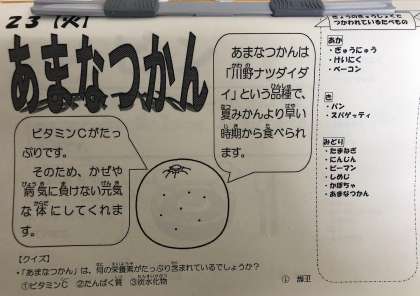 23(火)
あまなつかん
あまなつかんは
「川野ナツダイダ
イ」という品種で、
夏みかんより早い
時期から食べられ
ます。
ビタミンCがたっ
ぷりです。
そのため、かぜや
病気に負けない元気
な体にしてくれま
す。
【クイズ】
・「あまなつかん」は、何の栄養素がたっぷり含まれているでしょうか?
①ビタミンC ②たんぱく質 ③炭水化物
きょうのきゅうしょくに
つかわれているたべもの
あか
・ぎゅうにゅう
・けいにく
・ベーコン
き
・パン
・スパゲッティ
みどり
・たまねぎ
・にんじん
・ピーマン
・しめじ
・かぼちゃ
・あまなつかん